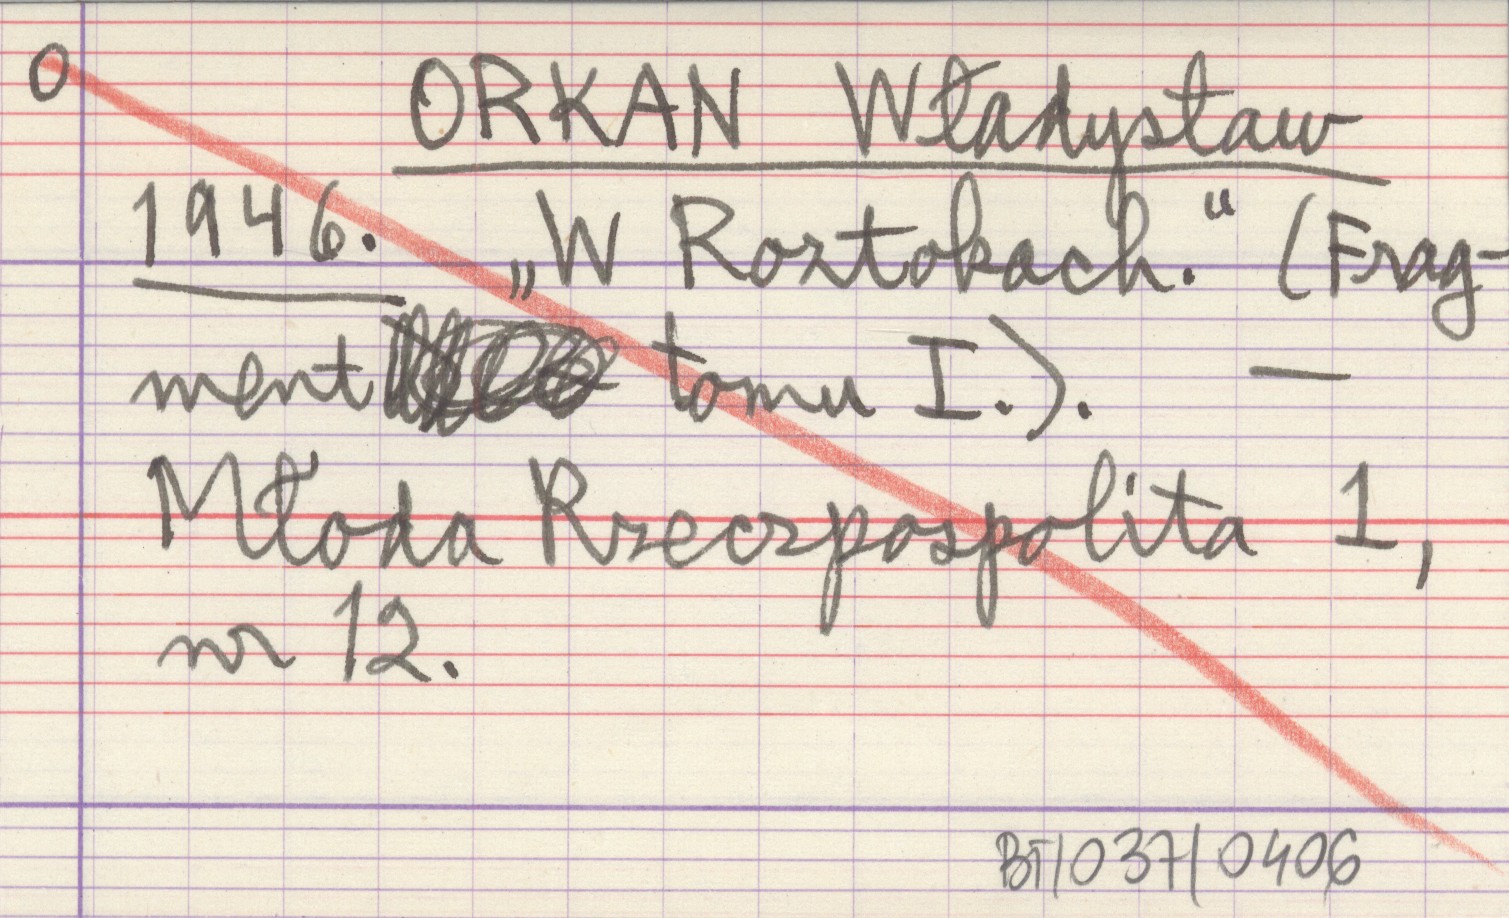 O
ORKAN Władysław
1946. „W Roztokach.“ (Frag-
ment tomu I.). —
Młoda Rzeczpospolita 1,
nr 12.
BT/037/0406